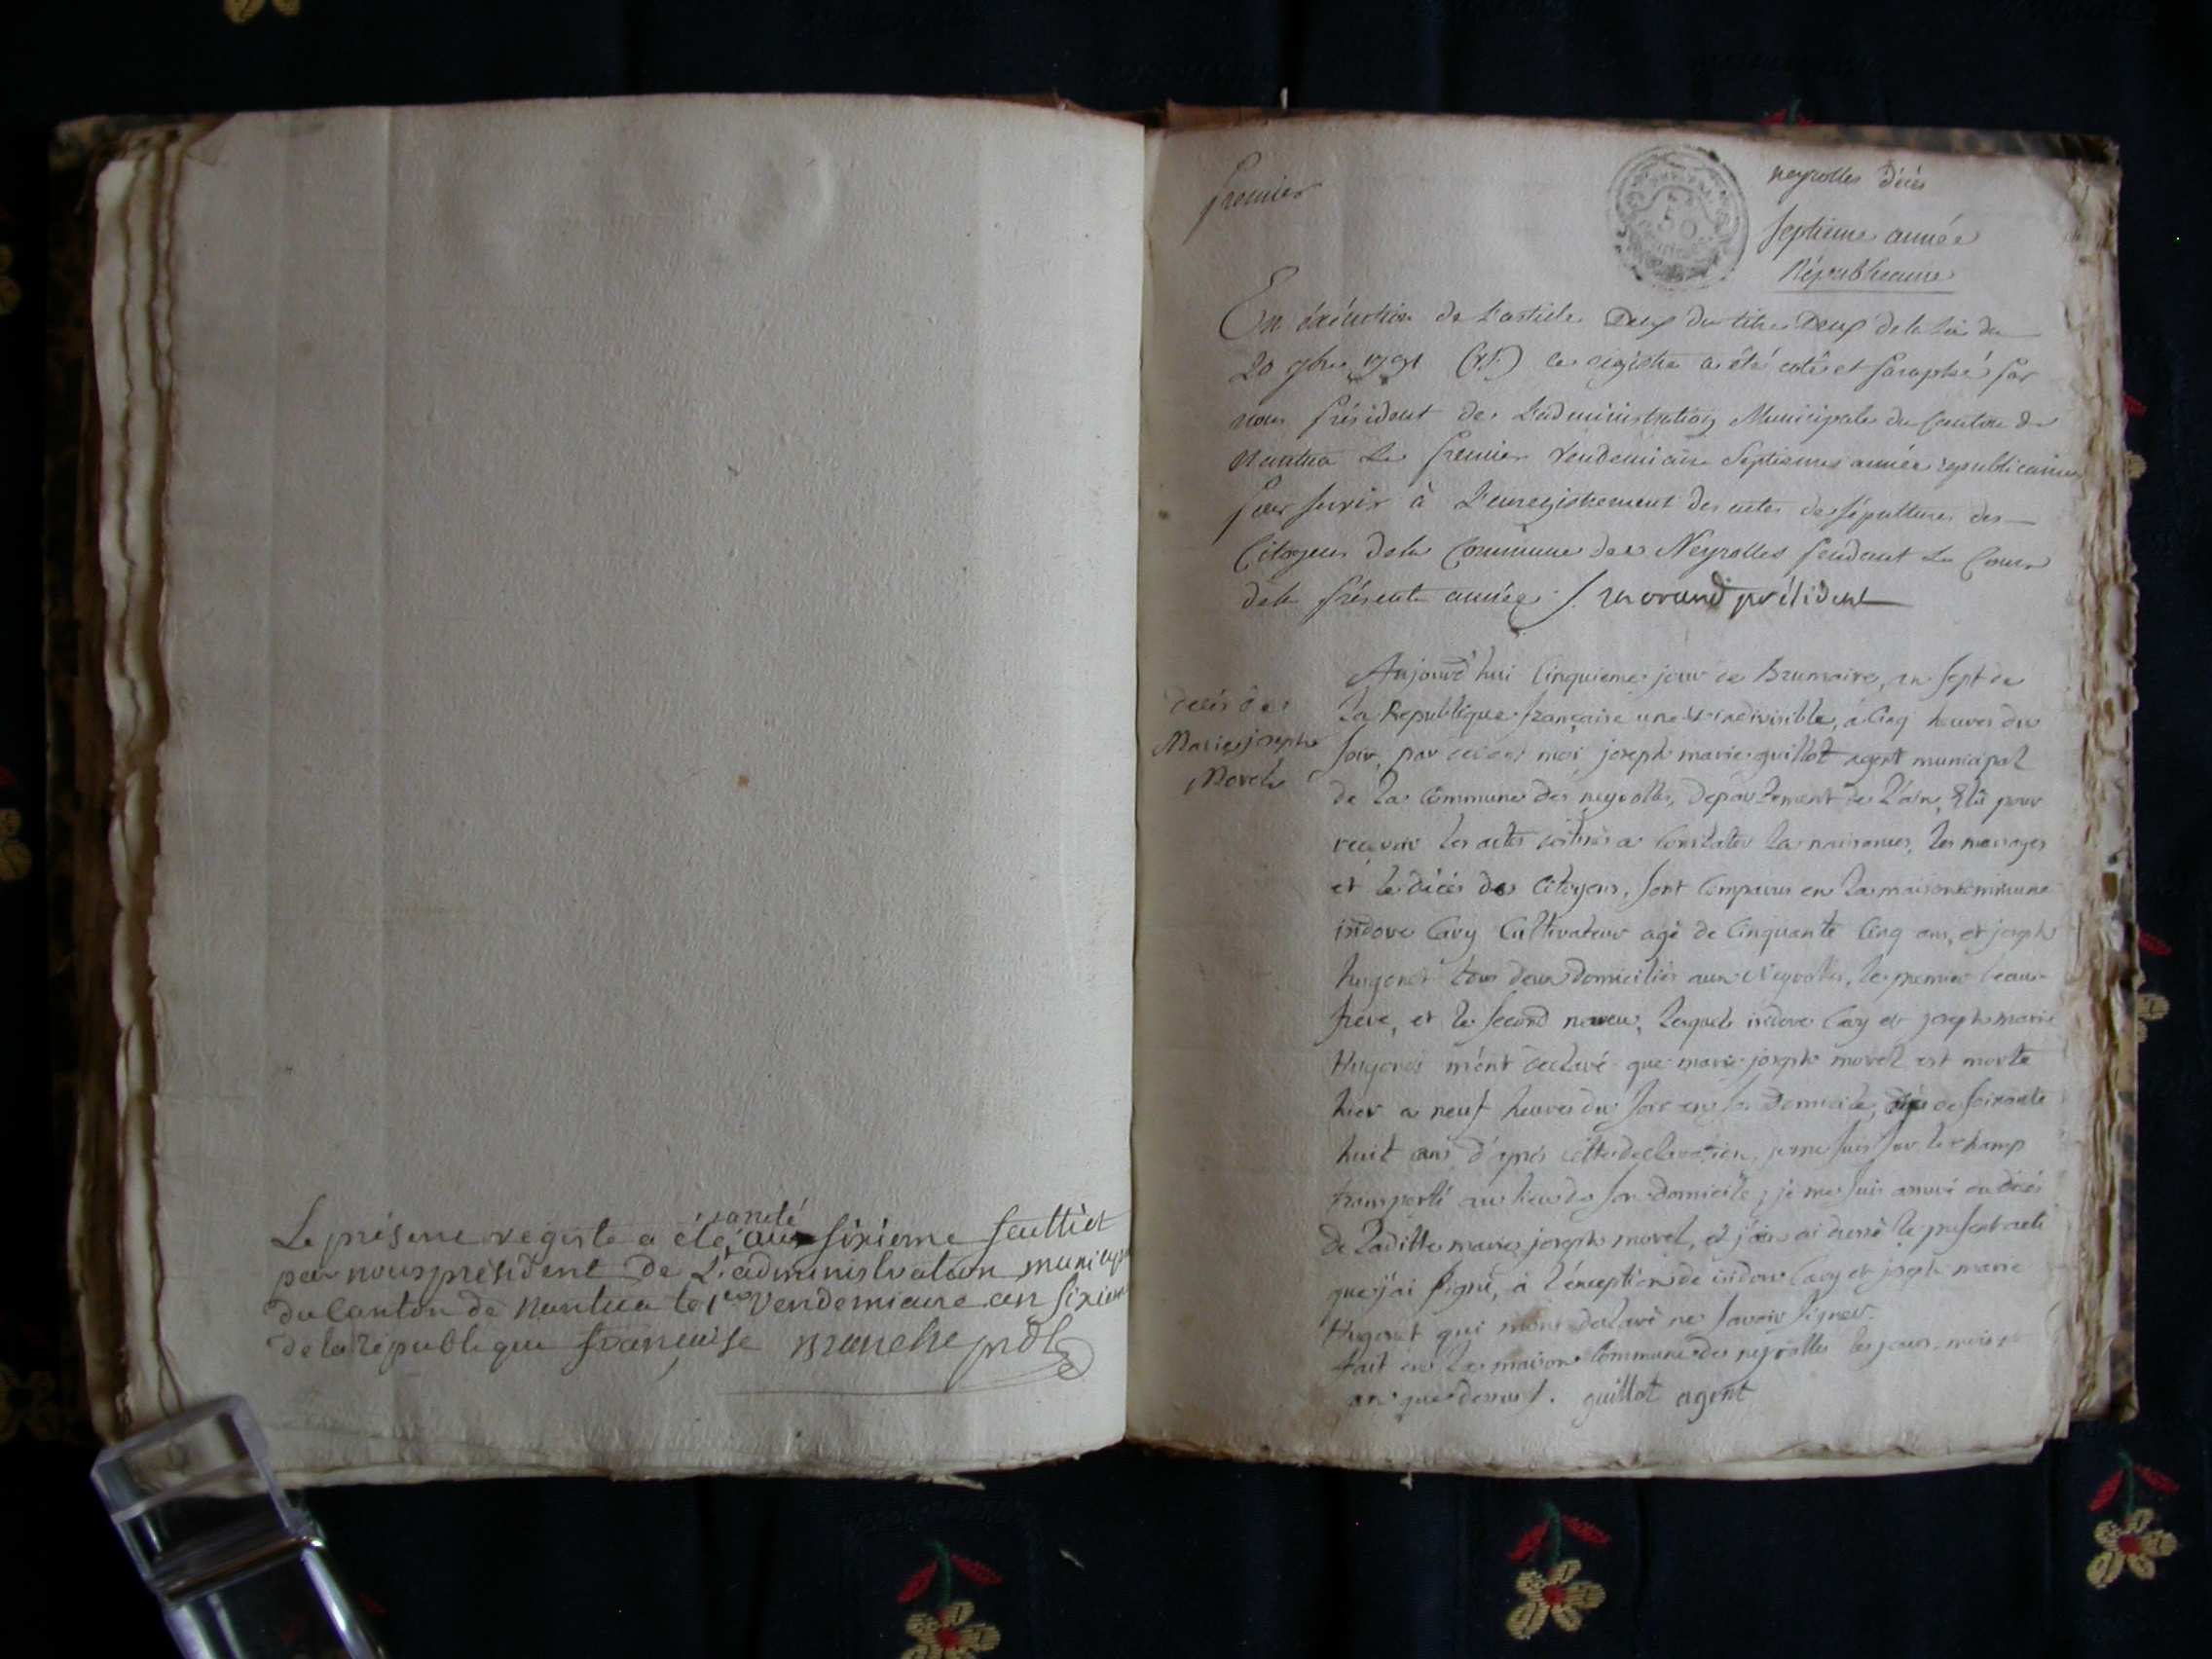 Le présent registe a été areté au sixieme feulliet
par nous president de L'administration municipa
du Canton de Nantua le 1er Vendemiaire an sixieme
de la republique francaise
premier
neyrolles décès
septieme année
Républicaine
En éxécution de L'article Deux du titre Deux de la Loi du
20 7bre 1791 (V.S.) ce régistre a été coté et paraphé par
nous président de L'administration Municipale du Canton de
Nantua Le premier Vendemiaire Septieme année republicaine
pour servir à L'enregistrement des actes de sépulture des
Citoyens de la Commune des Neyrolles pendant Le Cours
de la présente année morand président
décès de
Marie joseph
Morel
Aujourd'hui Cinquieme jour de Brumaire, an sept de
La Republique française une et indivisible, à Cinq heures du
soir, par devant moi joseph marie guillot agent municipal
de La Commune des neyrolles, departement de L'ain, Elû pour
recevoir les actes destinés a Constater la naissance, les mariages
et le décès des Citoyens, sont Comparus en La maison Commune
isidore Cavy Cultivateur agé de Cinquante Cinq ans, et joseph
hugonet tous deux domiciliés aux Neyrolles, le premier beau-
frere, et le second neveu, Lesquels isidore Cavy et joseph marie
Hugonet m'ont declaré que marie joseph morel est morte
hier a neuf heures du soir en son Domicile, agée de soixante
huit ans d'après cette declaration, je me suis sur le champ
transporté au lieu de son domicile, je me suis assuré du décès
de Laditte marie joseph morel, et j'en ai dressé le present acte
que j'ai signé, à l'exception de isidore Cavy et joseph marie
Hugonet qui m'ont declaré ne savoir signer.
fait en La maison Commune des neyrolles les jour, mois et
an que dessus. guillot agent